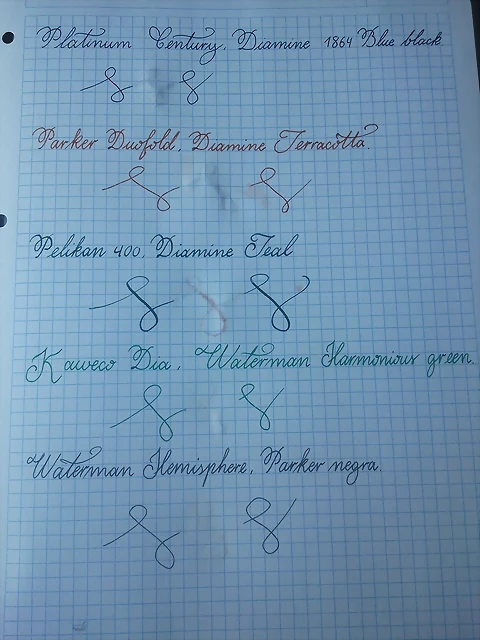 Platinum Century, Diamine 1864 Blue black
Parker Duofold, Diamine Terracotta.
Pelikan 400, Diamine Teal
Kaweco Dia, Waterman Harmonious green.
Waterman Hemisphere, Parker negra.